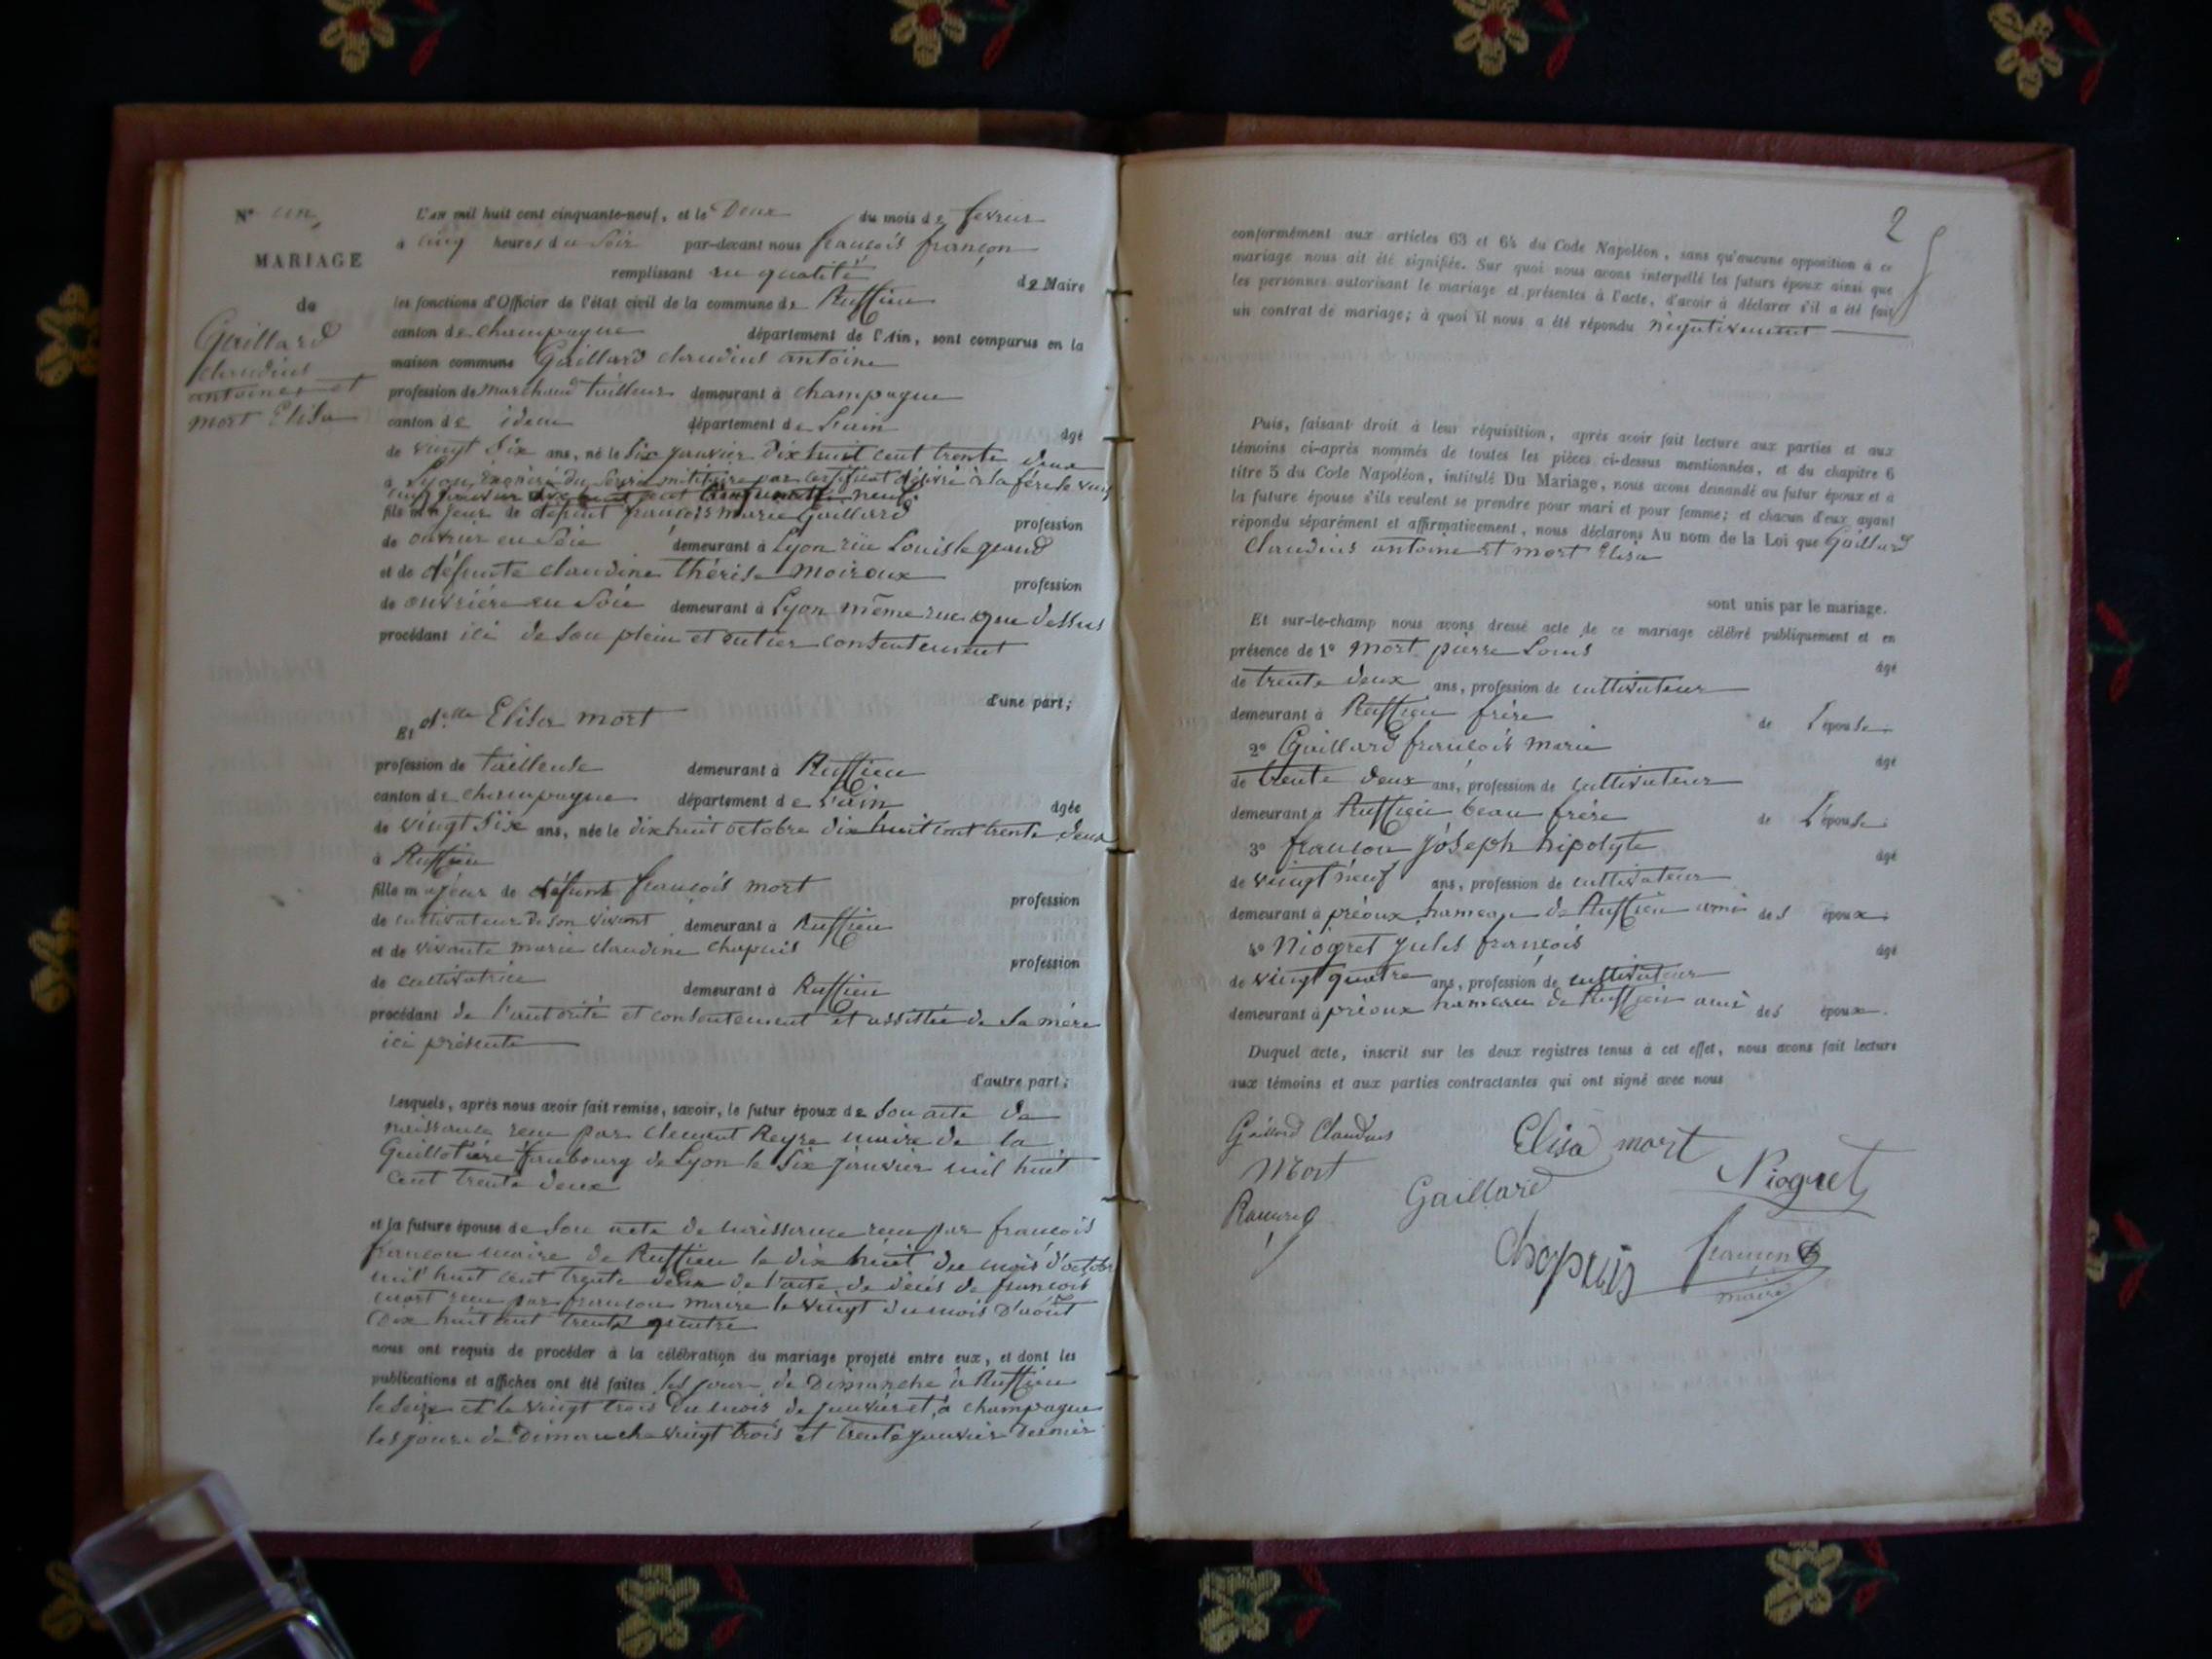 N° un
MARIAGE
de
Gaillard
claudius
antoine et
mort Elisa
L'an mil huit cent cinquante-neuf, et le Deux du mois de fevrier
à cinq heures du Soir par-devant nous francois françon
remplissant en qualité de Maire
les fonctions d'Officier de l'état civil de la commune de Ruffieu
canton de champagne département de l'Ain, sont comparus en la
maison commune Gaillard claudius antoine
profession de marchand tailleur demeurant à champagne
canton de idem département de l'ain âgé
de vingt Six ans, né le Six janvier Dix huit cent trente deux
à Lyon, du Service militaire par certificat délivré à la
janvier neuf
fils majeur de défunt francois marie Gaillard profession
de ouvrier en Soie demeurant à Lyon rüe Louis le grand
et de défunte claudine thérèse moiroux profession
de ouvrière en Soie demeurant à Lyon même rue que dessus
procédant ici de Son plein et entier consentement
d'une part;
Et d.elle Elisa mort
profession de tailleuse demeurant à Ruffieu
canton de champagne département de l'ain âgée
de vingt Six ans, née le dix huit octobre dix huit cent trente deux
à Ruffieu
fille majeur de défunt françois mort profession
de cultivateur de son vivant demeurant à Ruffieu
et de vivante marie claudine chapuis profession
de cultivatrice demeurant à Ruffieu
procédant de l'autorité et consentement et assistée de Sa mère
ici présente
d'autre part;
Lesquels, après nous avoir fait remise, savoir, le futur époux de Son acte de
naissance recu par clement Reyre maire de la
Guillotière faubourg de Lyon le Six janvier mil huit
cent trente deux
et la future épouse de Son acte de naissance recu par francois
francon maire de Ruffieu le dix huit du mois d'octobre
mil huit cent trente deux de l'acte de décès de francois
mort recu par francon maire le vingt du mois D'août
Dix huit cent trente quatre
nous ont requis de procéder à la célébration du mariage projeté entre eux, et dont les
publications et affiches ont été faites les jours de Dimanche à Ruffieu
le Seize et le vingt trois du mois de janvier et à champagne
les jours de Dimanche vingt trois et trente janvier dernier
2
conformément aux articles 63 et 64 du Code Napoléon, sans qu'aucune opposition à ce
mariage nous ait été signifiée. Sur quoi nous avons interpellé les futurs époux ainsi que
les personnes autorisant le mariage et présentes à l'acte, d'avoir à déclarer s'il a été fait
un contrat de mariage; à quoi il nous a été répondu négativement
Puis, faisant droit à leur réquisition, après avoir fait lecture aux parties et aux
témoins ci-après nommés de toutes les pièces ci-dessus mentionnées, et du chapitre 6
titre 5 du Code Napoléon, intitulé Du Mariage, nous avons demandé au futur époux et à
la future épouse s'ils veulent se prendre pour mari et pour femme; et chacun d'eux ayant
répondu séparément et affirmativement, nous déclarons Au nom de la Loi que Gaillard
Claudius antoine et mort Elisa
sont unis par le mariage.
Et sur-le-champ nous avons dressé acte de ce mariage célébré publiquement et en
présence de 1° mort pierre Louis âgé
de trente deux ans, profession de cultivateur
demeurant à Ruffieu frère de l'épouse
2° Gaillard francois marie âgé
de trente deux ans, profession de cultivateur
demeurant à Ruffieu beau frère de L'épouse
3° francon joseph hipolyte âgé
de vingt neuf ans, profession de cultivateur
demeurant à préoux hameau de Ruffieu ami des époux
4° Niogret jules françois âgé
de vingt quatre ans, profession de cultivateur
demeurant à préoux hameau de Ruffieu ami des époux.
Duquel acte, inscrit sur les deux registres tenus à cet effet, nous avons fait lecture
aux témoins et aux parties contractantes qui ont signé avec nous
Gaillard Claudius Elisa mort
Mort Gaillard Niogret
Chapuis françon
maire